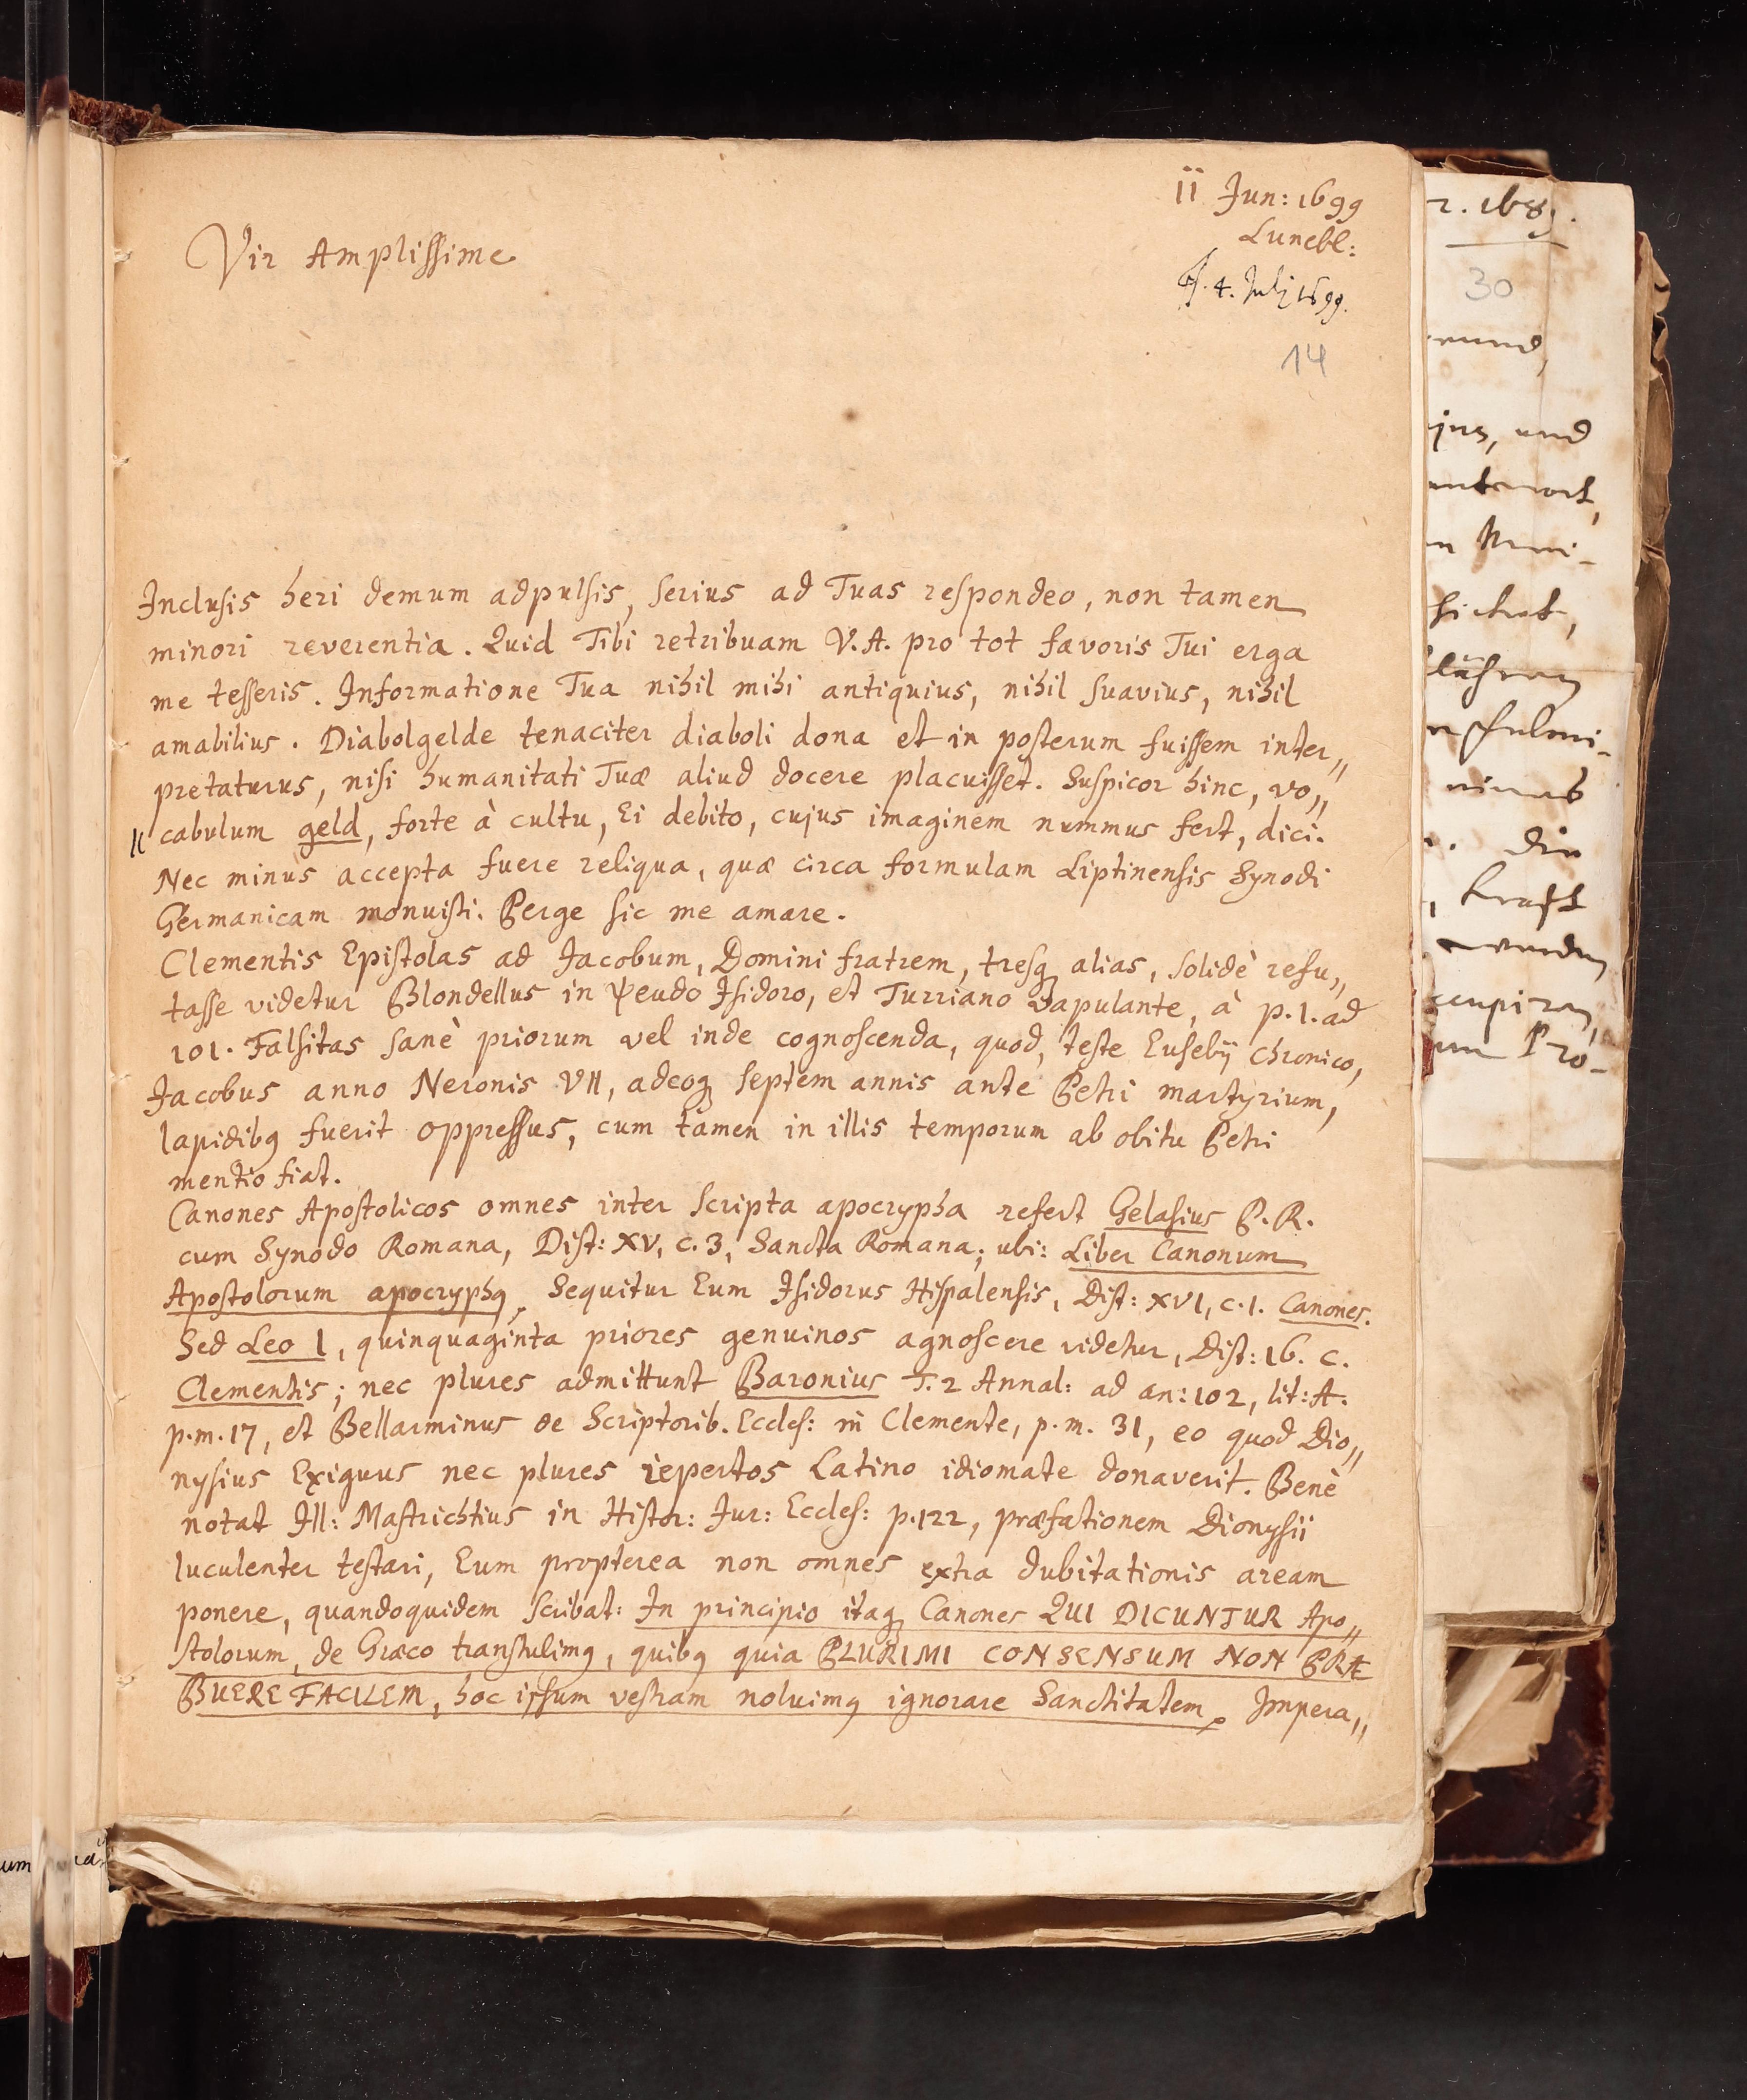 11 Jun: 1699
Lunebl:
4. Julij 1699.
14
Vir Amplissime
Inclusis heri demum adpulsis, serius ad Tuas respondeo, non tamen
minori reverentia. Quid Tibi retribuam V. A. pro tot favoris Tui erga
me tesseris. Informatione Tua nihil mihi antiquius, nihil suavius, nihil
amabilius. Diabolgelde tenaciter diaboli dona et in posterum fuissem inter„
pretaturus, nisi humanitati Tuæ aliud docere placuisset. Suspicor hinc, vo„
cabulum geld, forte à cultu, Ei debito, cujus imaginem nummus fert, dici.
Nec minùs accepta fuere reliqua, quæ circa formulam Liptinensis Synodi
Germanicam monuisti. Perge sic me amare.
Clementis Epistolas ad Jacobum, Domini fratrem, tresq3 alias, solidè refu„
tasse videtur Blondellus in Ψeudo Isidoro, et Turriano vapulante, à p. 1. ad
101. Falsitas sanè priorum vel inde cognoscenda, quod, teste Eusebij Chronico,
Jacobus anno Neronis VII, adeoq3 septem annis ante Petri martyrium,
lapidibq fuerit oppressus, cum tamen in illis temporum ab obitu Petri
mentio fiat.
Canones Apostolicos omnes inter scripta apocrypha refert Gelasius P. R.
cum Synodo Romana, Dist: XV, c. 3, Sancta Romana; ubi: Liber Canonum
Apostolorum apocryphq. Sequitur Eum Isidorus Hispalensis, Dist: XVI, c. 1. Canones.
Sed Leo I, quinquaginta priores genuinos agnoscere videtur, Dist: 16. c.
Clementis; nec plures admittunt Baronius T. 2 Annal: ad an: 102, lit: A.
p. m. 17, et Bellarminus de Scriptorib. Eccles: in Clemente, p. m. 31, eo quod Dio„
nysius Exiguus nec plures repertos Latino idiomate donaverit. Benè
notat Ill: Mastrichtius in Histor: Jur: Eccles: p. 122, præfationem Dionysii
luculenter testari, Eum propterea non omnes extra dubitationis aream
ponere, quandoquidem scribat: In principio itaq3 Canones QUI DICUNTUR Apo„
stolorum, de Græco transtulimq, quibq quia PLURIMI CONSENSUM NON PRÆ
BUERE FACILEM, hoc ipsum vestram noluimq ignorare Sanctitatem. Impera„
2. 1689.
30
und
Kraft
Pro-